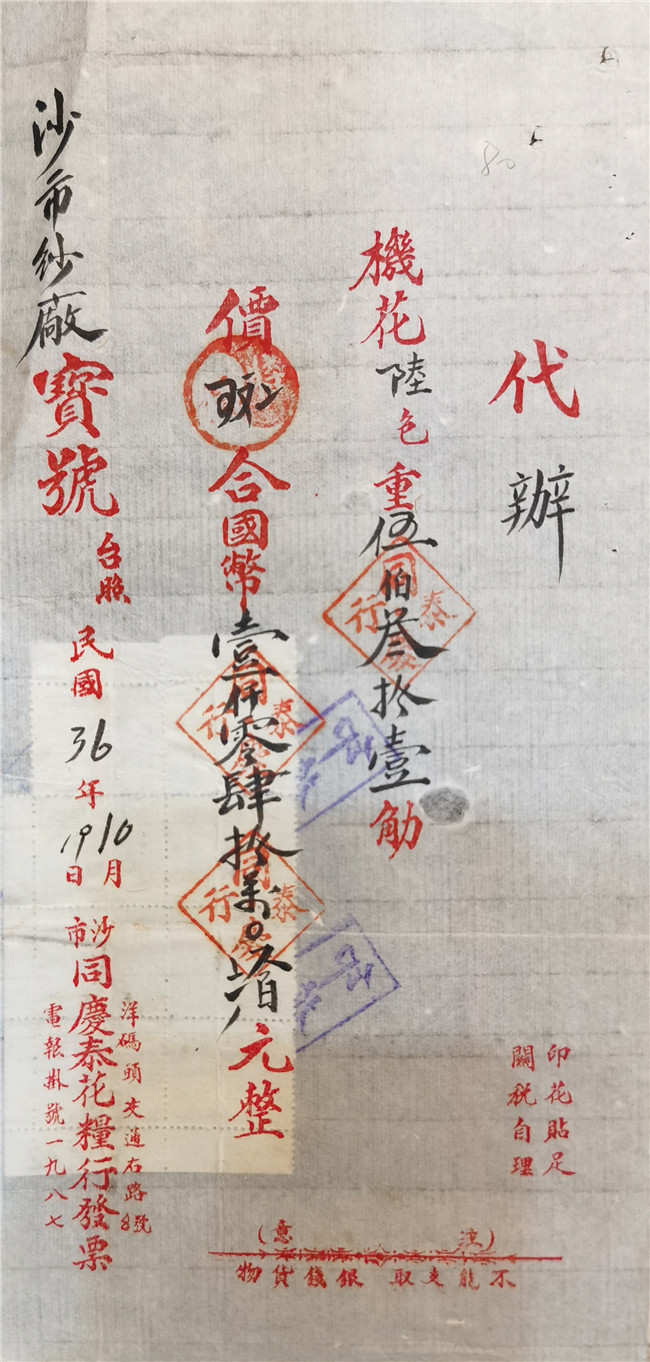 代辦
機花陸色重伍伯叁拾壹觔
價
合國幣壹仟零肆拾萬〇
元整
沙市紗廠寶號台照
民國36年10月19日
沙市同慶泰花糧行發票
洋碼頭交通右路8號
電報掛號一九八七
印花貼足
關稅自理
(注意)
不能支取銀錢貨物
同慶泰行
同慶泰行
同慶泰行